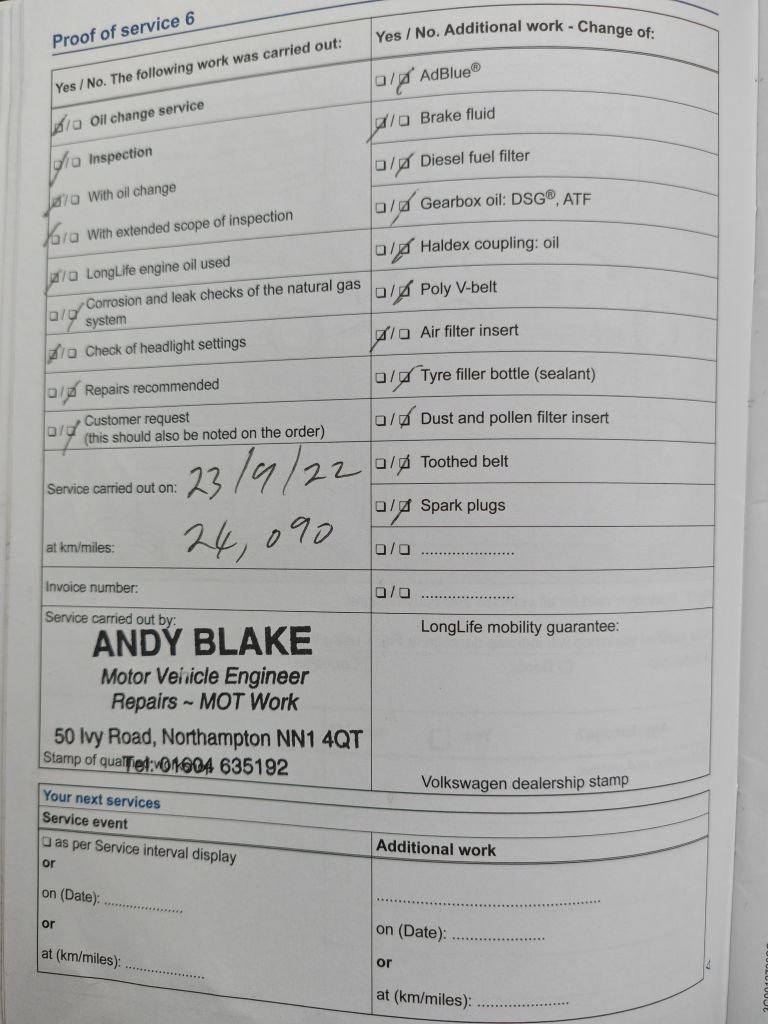 Proof of service 6
Yes / No. The following work was carried out:
☑/☐ Oil change service
☑/☐ Inspection
☑/☐ With oil change
☑/☐ With extended scope of inspection
☑/☐ LongLife engine oil used
☐/☑ Corrosion and leak checks of the natural gas
system
☑/☐ Check of headlight settings
☐/☑ Repairs recommended
☐/☑ Customer request
(this should also be noted on the order)
Service carried out on: 23/9/22
at km/miles: 24,090
Invoice number:
Service carried out by:
ANDY BLAKE
Motor Vehicle Engineer
Repairs ~ MOT Work
50 Ivy Road, Northampton NN1 4QT
Tel: 01604 635192
Stamp of
Yes / No. Additional work - Change of:
☐/☑ AdBlue®
☑/☐ Brake fluid
☐/☑ Diesel fuel filter
☐/☑ Gearbox oil: DSG®, ATF
☐/☑ Haldex coupling: oil
☐/☑ Poly V-belt
☑/☐ Air filter insert
☐/☑ Tyre filler bottle (sealant)
☐/☑ Dust and pollen filter insert
☐/☑ Toothed belt
☐/☑ Spark plugs
☐/☐ ......................
☐/☐ ......................
LongLife mobility guarantee:
Volkswagen dealership stamp
Your next services
Service event
☐ as per Service interval display
or
on (Date): ..................
or
at (km/miles): ..................
Additional work
..................................................
on (Date): .....................
or
at (km/miles): .....................